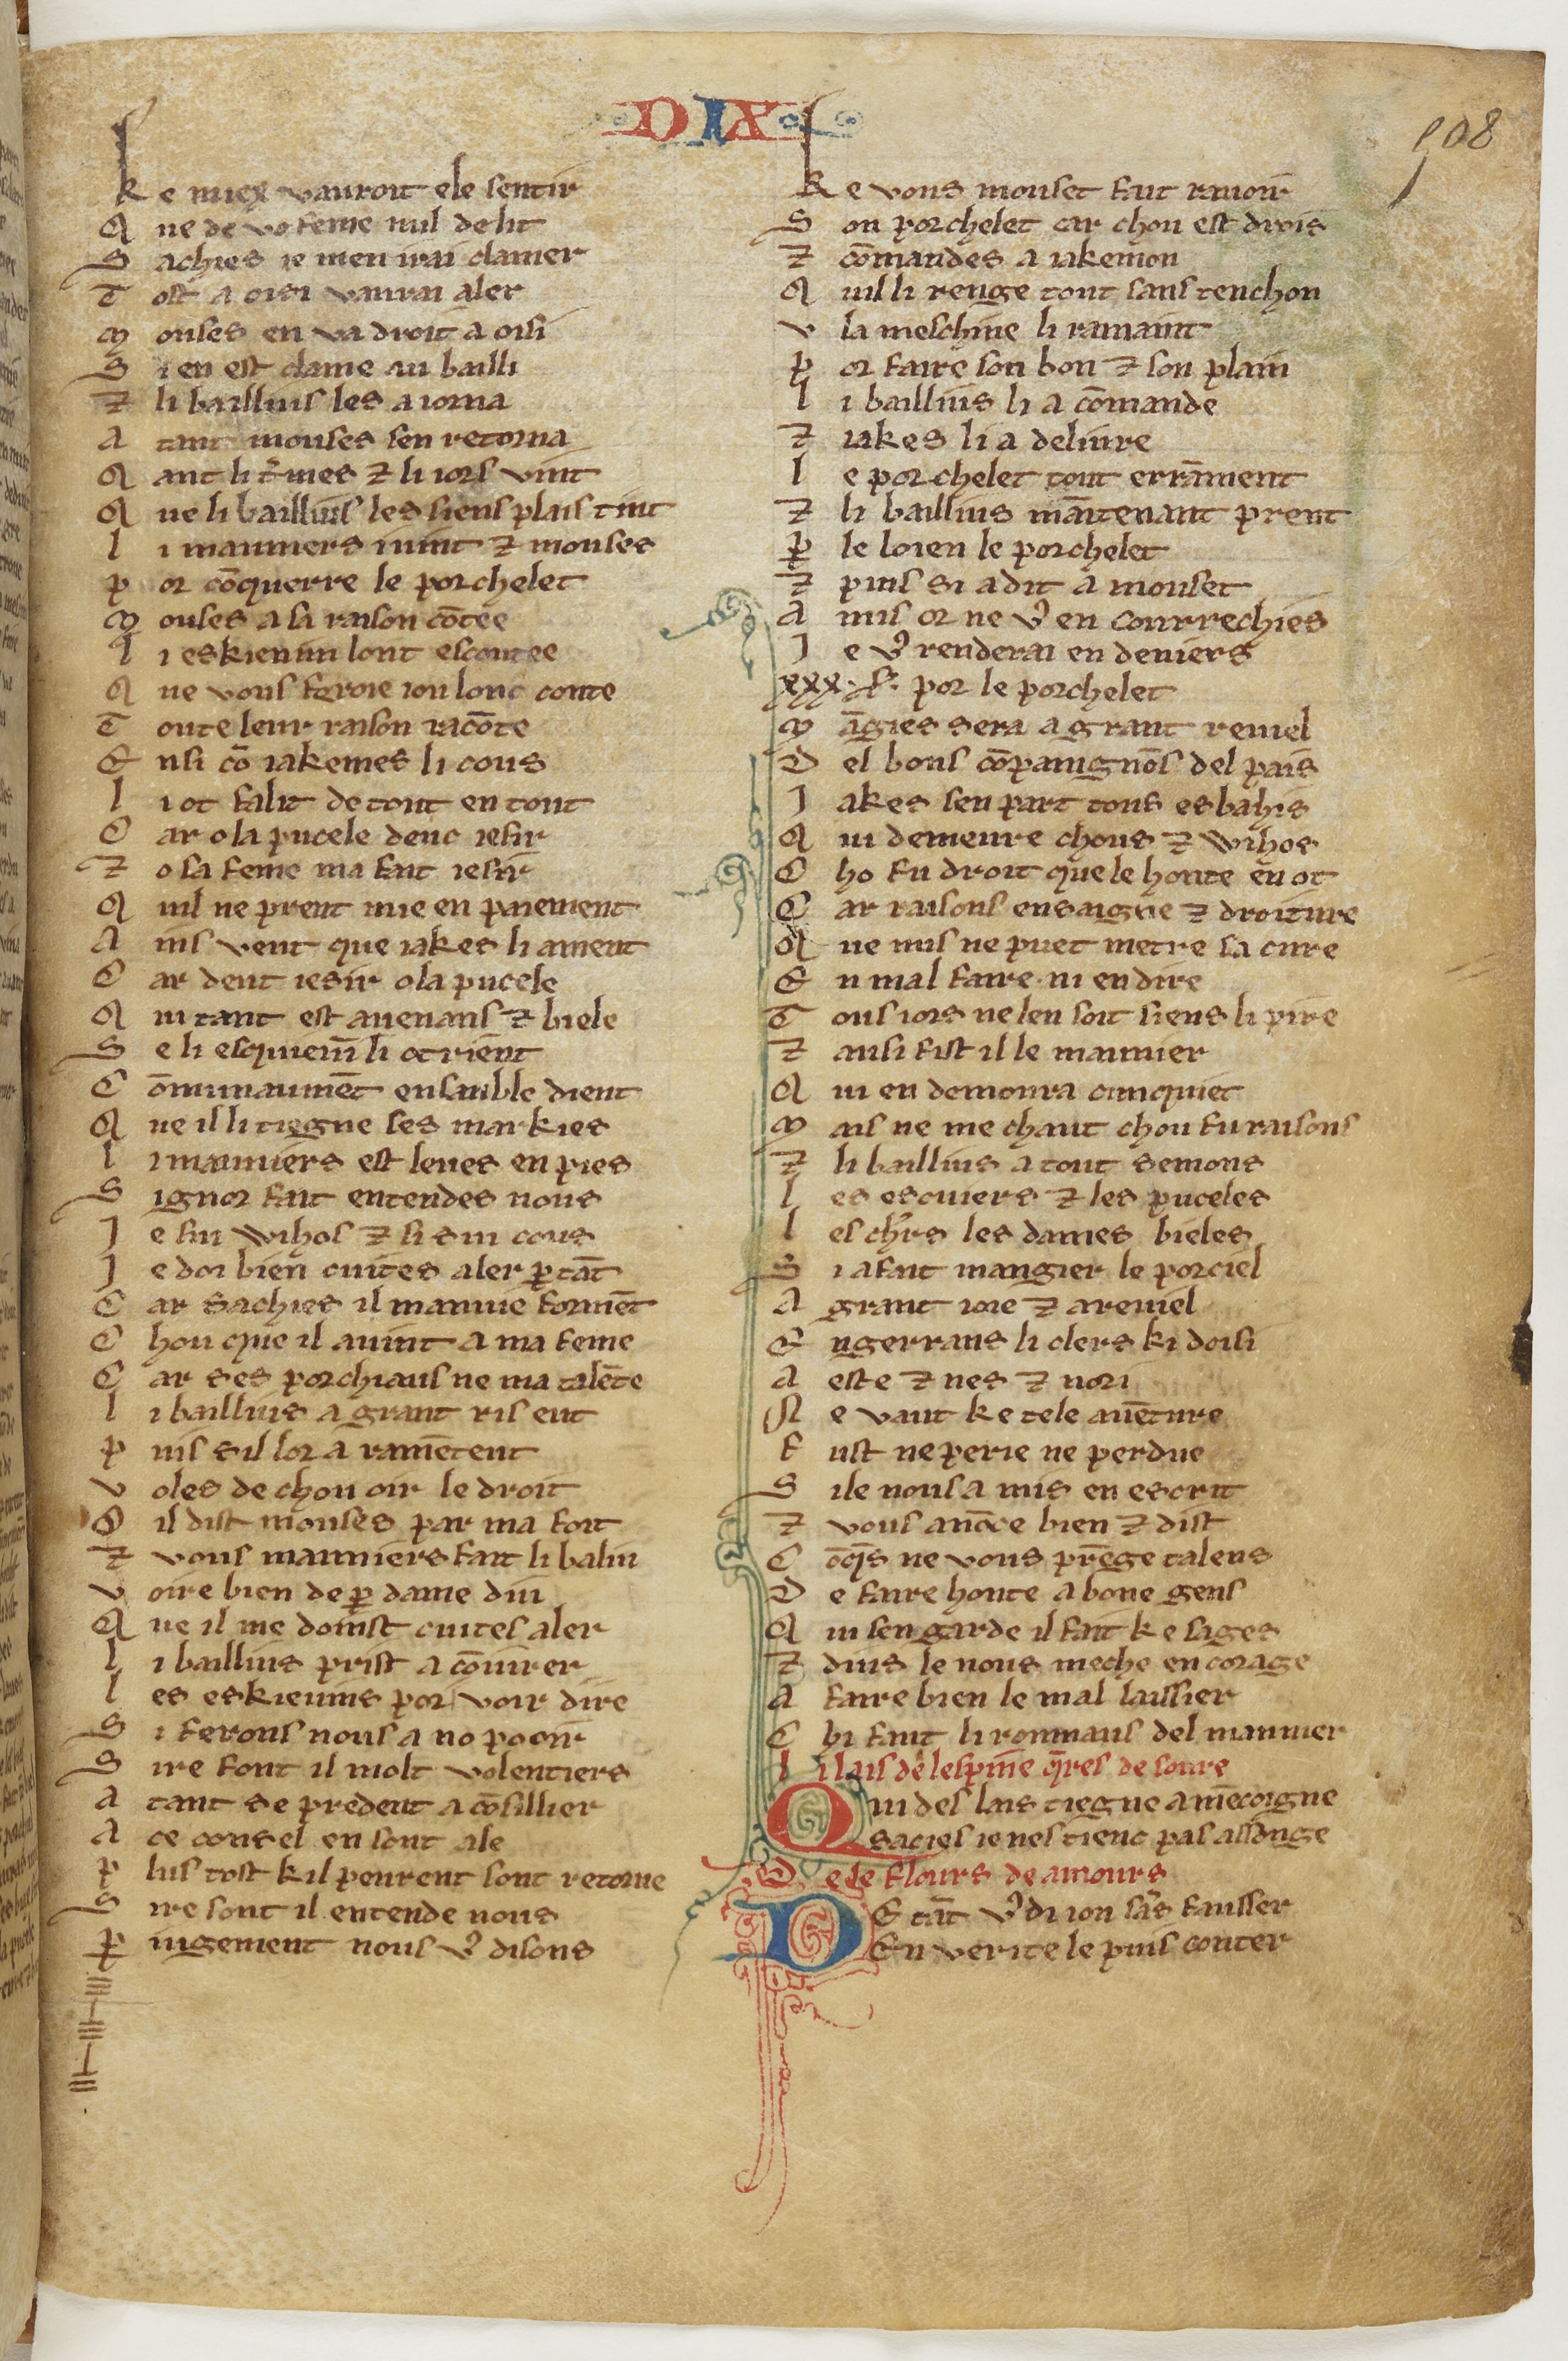 DIX
508
Ke miex vauroit ele sentir
Que de vo feme nul delit
Sachies ie men irai clamer
Tost a oisi vaurai aler
Mouses en va droit a oisi
Si en est clame au bailli
⁊ li baillius les aiorna
Atant mouses sen retorna
Qant li t̉mes ⁊ li iors vint
Que li baillius les siens plais tint
Li mauniers iuint ⁊ mouses
Por cōquerre le porchelet
Mouses a sa raison cōtee
Li eskieuin lont escoutee
Que vous feroie iou lonc conte
Toute leur raison racōte
Ensi cō iakemes li cous
Li ot falit de tout en tout
Car o la pucele deuc iesir
⁊ o sa feme ma fait iesir
Quil ne prent mie en paiement
Ains veut que iakes li ament
Car deut iesir o la pucele
Qui tant est auenans ⁊ biele
Se li esquieuī li otriēt
Cōmunaumēt ensanble dient
Que il li tiegne ses markies
Li mauniers est leues en pies
Signor fait entendes nous
Je sui wihos ⁊ si sui cous
Je doi bien cuites aler ꝑ tāt
Car sachies il manuie formēt
Chou que il auint a ma feme
Car ses porchiaus ne ma talēte
Li baillius a grant ris eut
Puis sil lor a ramētent
Voles de chou oir le droit
Oil dist mouses par ma foit
⁊ vous mauniers fait li baliu
Voire bien de ꝑ dame diu
Que il me doinst cuites aler
Li baillius prist a cōiurer
Les eskieuins por voir dire
Si ferons nous a no pooir
Sire font il molt volentiers
Atant se prēdent a cōsillier
A ce consel en sont ale
Plus tost kil peurent sont retorne
Sire sont il entende nous
Ꝑ iugement nous v᷒ disons
Ke vous mouset fait rauoir
Son porchelet car chou est drois
⁊ cōmandes a iakemon
Quil li renge tout sans tenchon
V la meschine li ramaint
Por faire son bon ⁊ son plain
Li baillius li a cōmande
⁊ iakes li a deliure
Le porchelet tout errāment
⁊ li baillius māitenant prent
Ꝑ le loien le porchelet
⁊ puis si a dit a mouset
Amis or ne v᷒ en courrechies
Je v᷒ renderai en deniers
xxx. s. por le porchelet
Māgies sera a grant reuiel
Del bons cōpanignōs del pais
Jakes sen part tous esbahis
Qui demeure chous ⁊ wihos
Cho fu droit que le honte en ot
Car raisons ensaigne ⁊ droiture
Que nus ne puet metre sa cure
En mal faire ni en dire
Tous iors ne len soit siens li pire
⁊ ausi fist il le maunier
Qui en demoura cunquiet
Mais ne me chaut chou fu raisons
⁊ li baillius a tout semons
Les escuiers ⁊ les puceles
Les chꝰrs les dames bieles
Si a fait mangier le porciel
A grant ioie ⁊ a reuiel
Engerrans li clers ki doisi
A este ⁊ nes ⁊ nori
Ne vaut ke tele auēture
Fust ne perie ne perdue
Si le nous a mis en escrit
⁊ vous anōce bien ⁊ dist
Cōq̄s ne vous prēge talens
De faire honte a bone gens
Qui sen garde il fait ke sages
⁊ dius le nous meche en corage
A faire bien le mal laissier
Chi faut li roumans del maunier
Li lais de lespine q̄res desoure
Qui des lais tiegne a mēcoigne
Sacies ie nes tienc pas assōnge
De le flours de amours
DE tāt v᷒ di ion sās fausser
En verite le puis conter